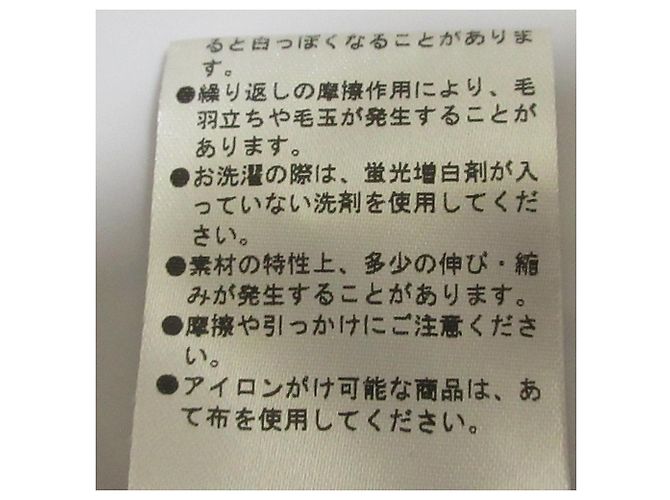 ると白っぽくなることがありま
す。
●繰り返しの摩擦作用により、毛
羽立ちや毛玉が発生することが
あります。
●お洗濯の際は、蛍光増白剤が入
っていない洗剤を使用してくだ
さい。
●素材の特性上、多少の伸び・縮
みが発生することがあります。
●摩擦や引っかけにご注意くださ
い。
●アイロンがけ可能な商品は、あ
て布を使用してください。